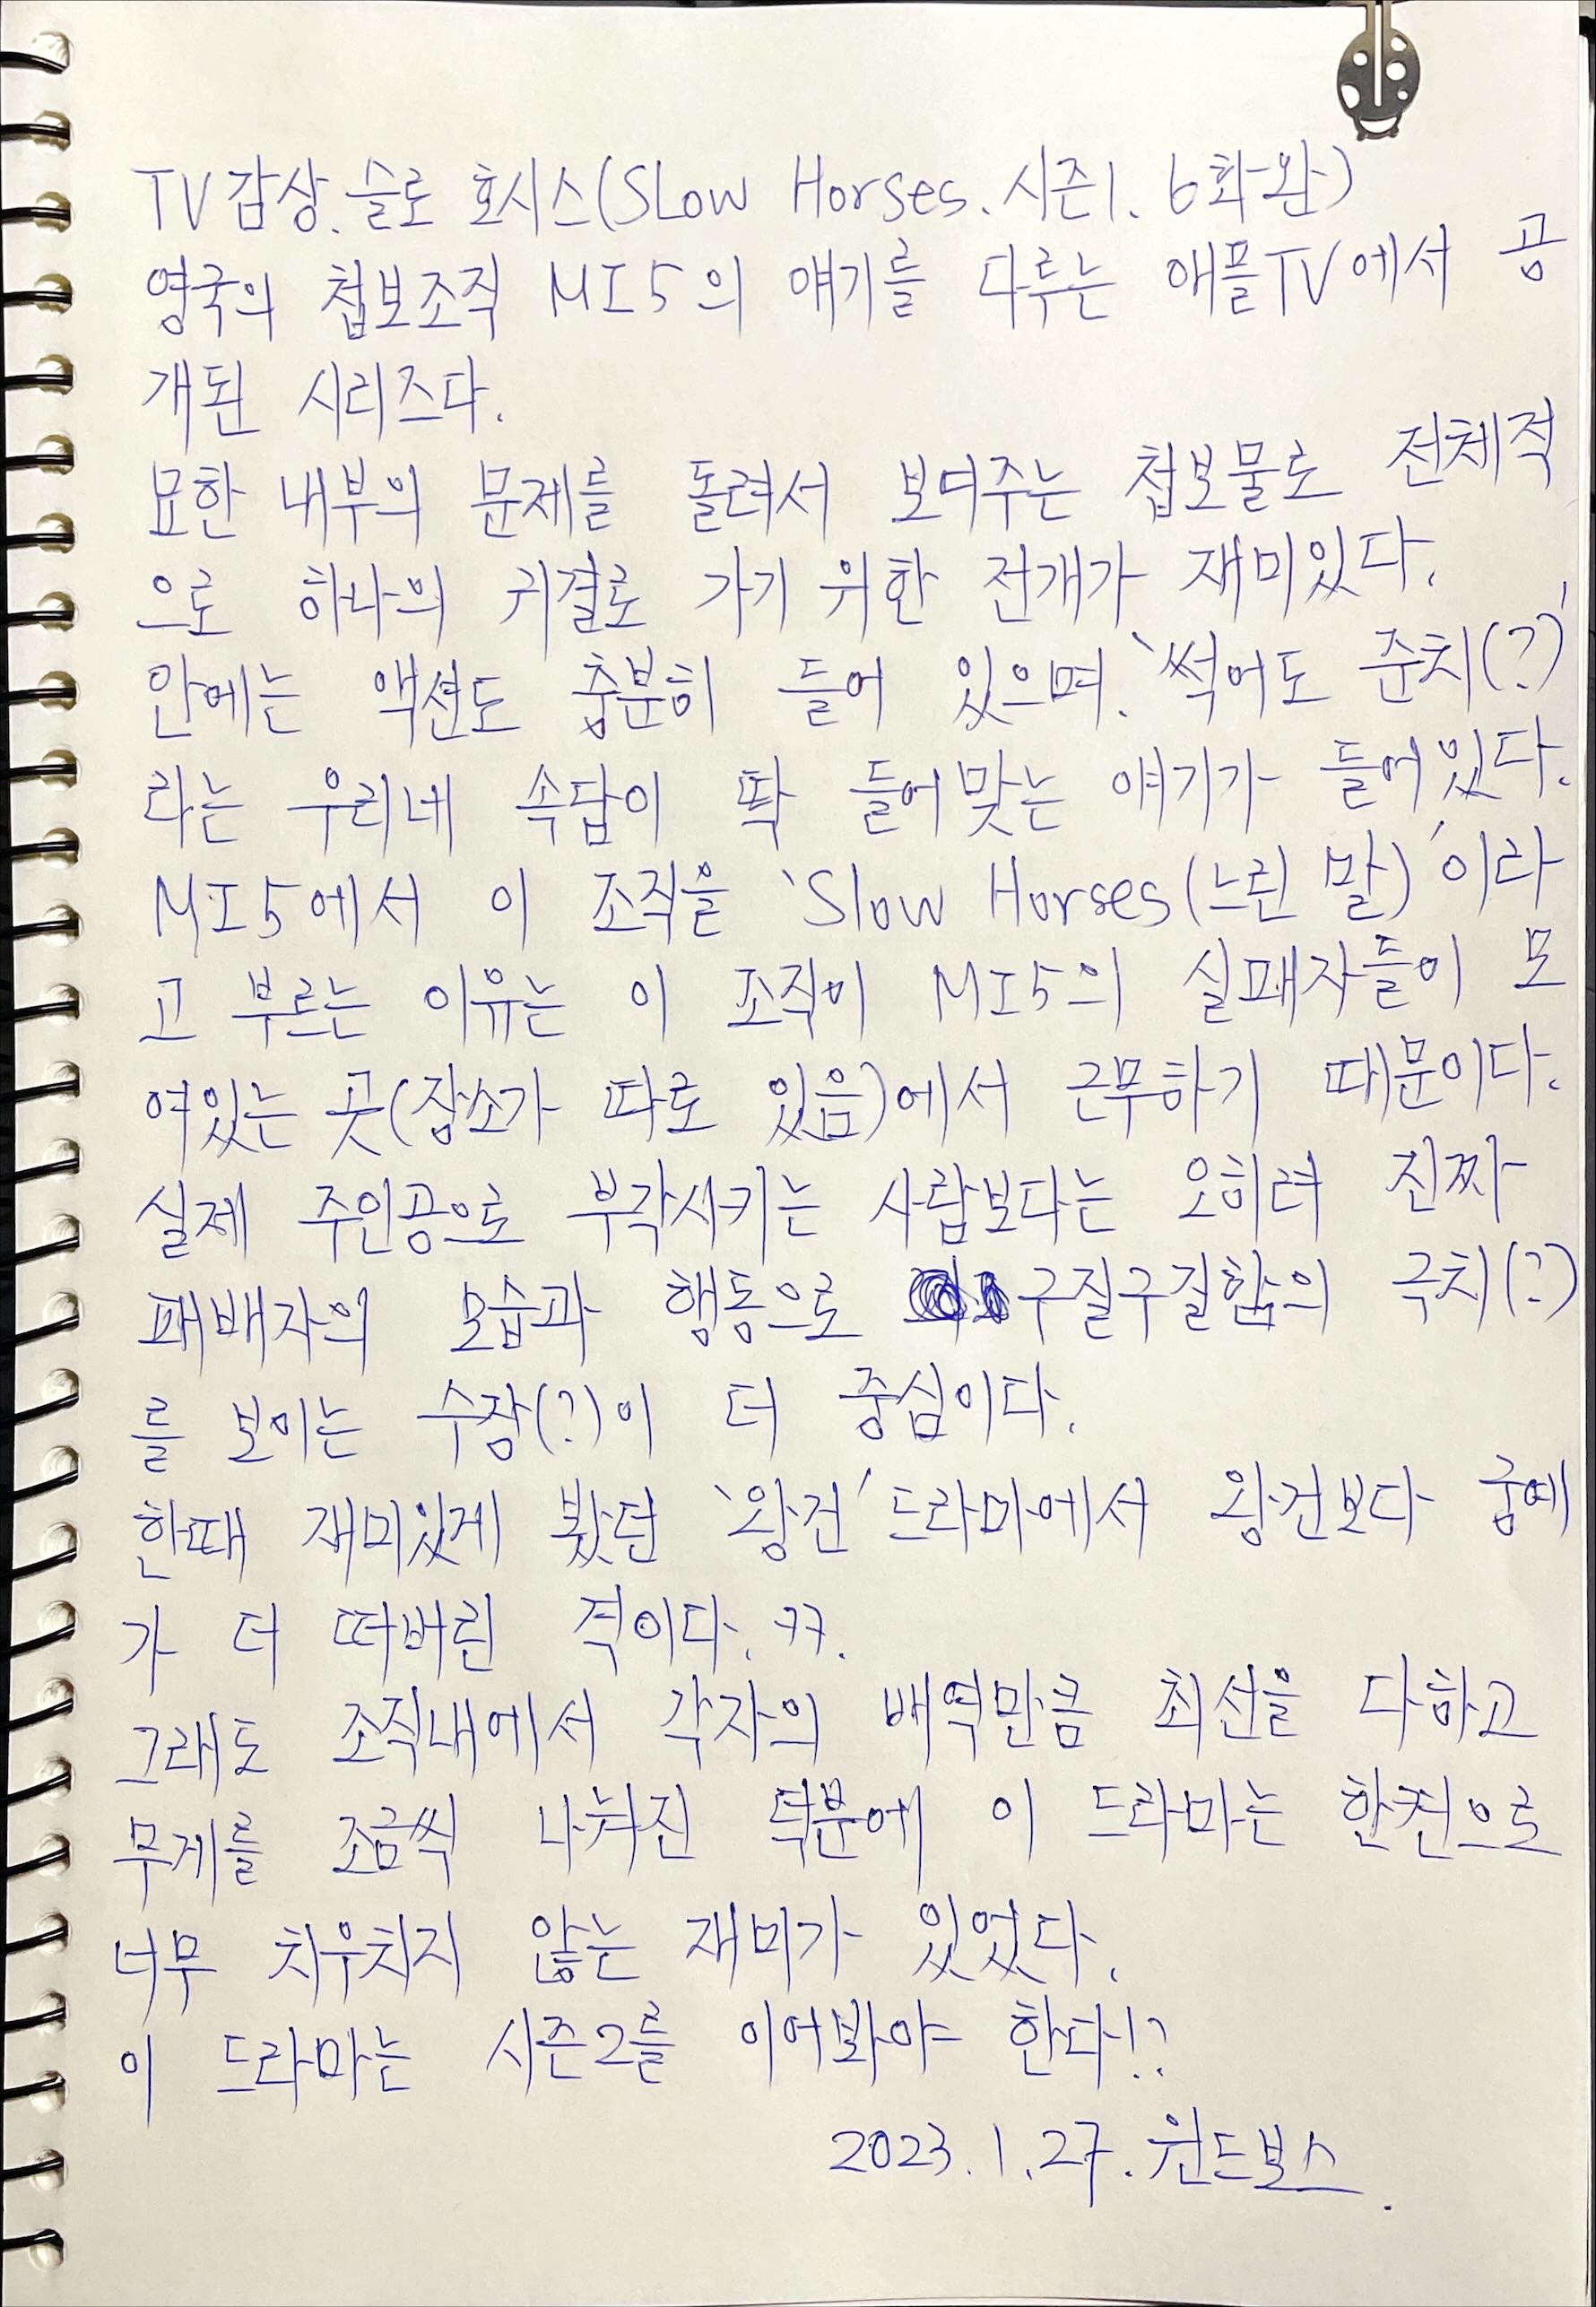 TV감상. 슬로 호시스(SLow Horses. 시즌1. 6화완)
영국의 첩보조직 MI5의 얘기를 다루는 애플TV에서 공
개된 시리즈다.
묘한 내부의 문제를 돌려서 보여주는 첩보물로 전체적
으로 하나의 귀결로 가기 위한 전개가 재미있다.
안에는 액션도 충분히 들어 있으며. '썩어도 준치(?)'
라는 우리네 속담이 딱 들어맞는 얘기가 들어있다.
MI5에서 이 조직을 'Slow Horses(느린 말)'이라
고 부르는 이유는 이 조직이 MI5의 실패자들이 모
여있는 곳(장소가 따로 있음)에서 근무하기 때문이다.
실제 주인공으로 부각시키는 사람보다는 오히려 진짜
패배자의 모습과 행동으로 구질구질함의 극치(?)
를 보이는 수장(?)이 더 중심이다.
한때 재미있게 봤던 '왕건'드라마에서 왕건보다 궁예
가 더 떠버린 격이다. ㅋㅋ.
그래도 조직내에서 각자의 배역만큼 최선을 다하고
무게를 조금씩 나눠진 덕분에 이 드라마는 한켠으로
너무 치우치지 않는 재미가 있었다.
이 드라마는 시즌2를 이어봐야 한다!?
2023. 1. 27. 윈드보스.